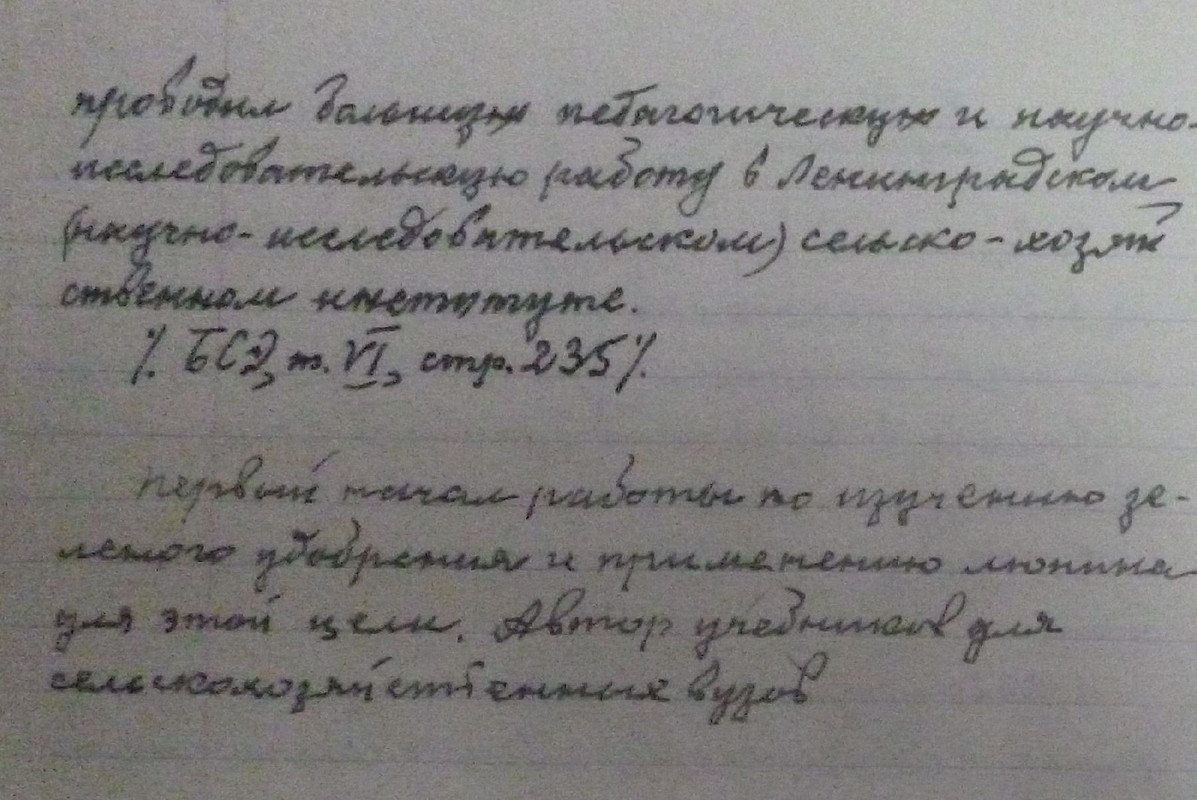 проводил большую педагогическую и научно-
исследовательскую работу в Ленинградском
(научно-исследовательском) сельско-хозяй
ственном институте.
%. БСЭ, т. VI, стр. 235 %.
Первый начал работы по изучению зе-
леного удобрения и применению люпина
для этой цели. Автор учебников для
сельскохозяйственных вузов